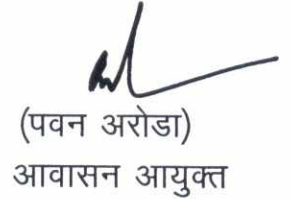 (पवन अरोडा)
आवासन आयुक्त